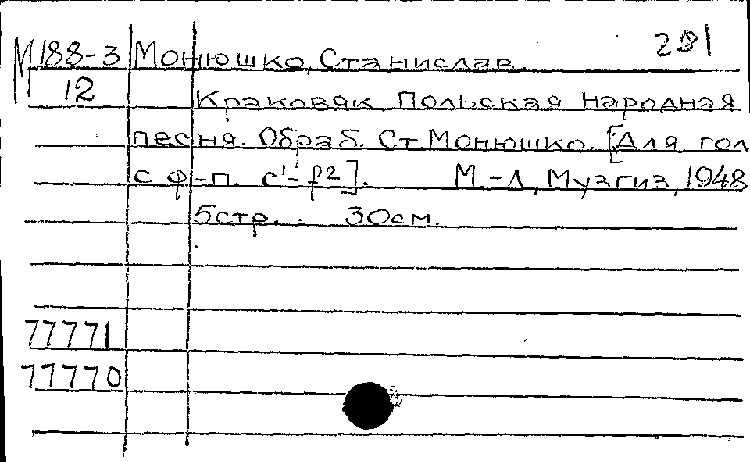 М188-3 Монюшко, Станислав. 291
12 Краковяк. Польская народная
песня. Обраб. Ст. Монюшко. [Для гол
с ф-п. c¹-f²]. М.-Л., Музгиз, 1948
5стр. 30см.
77771
77770